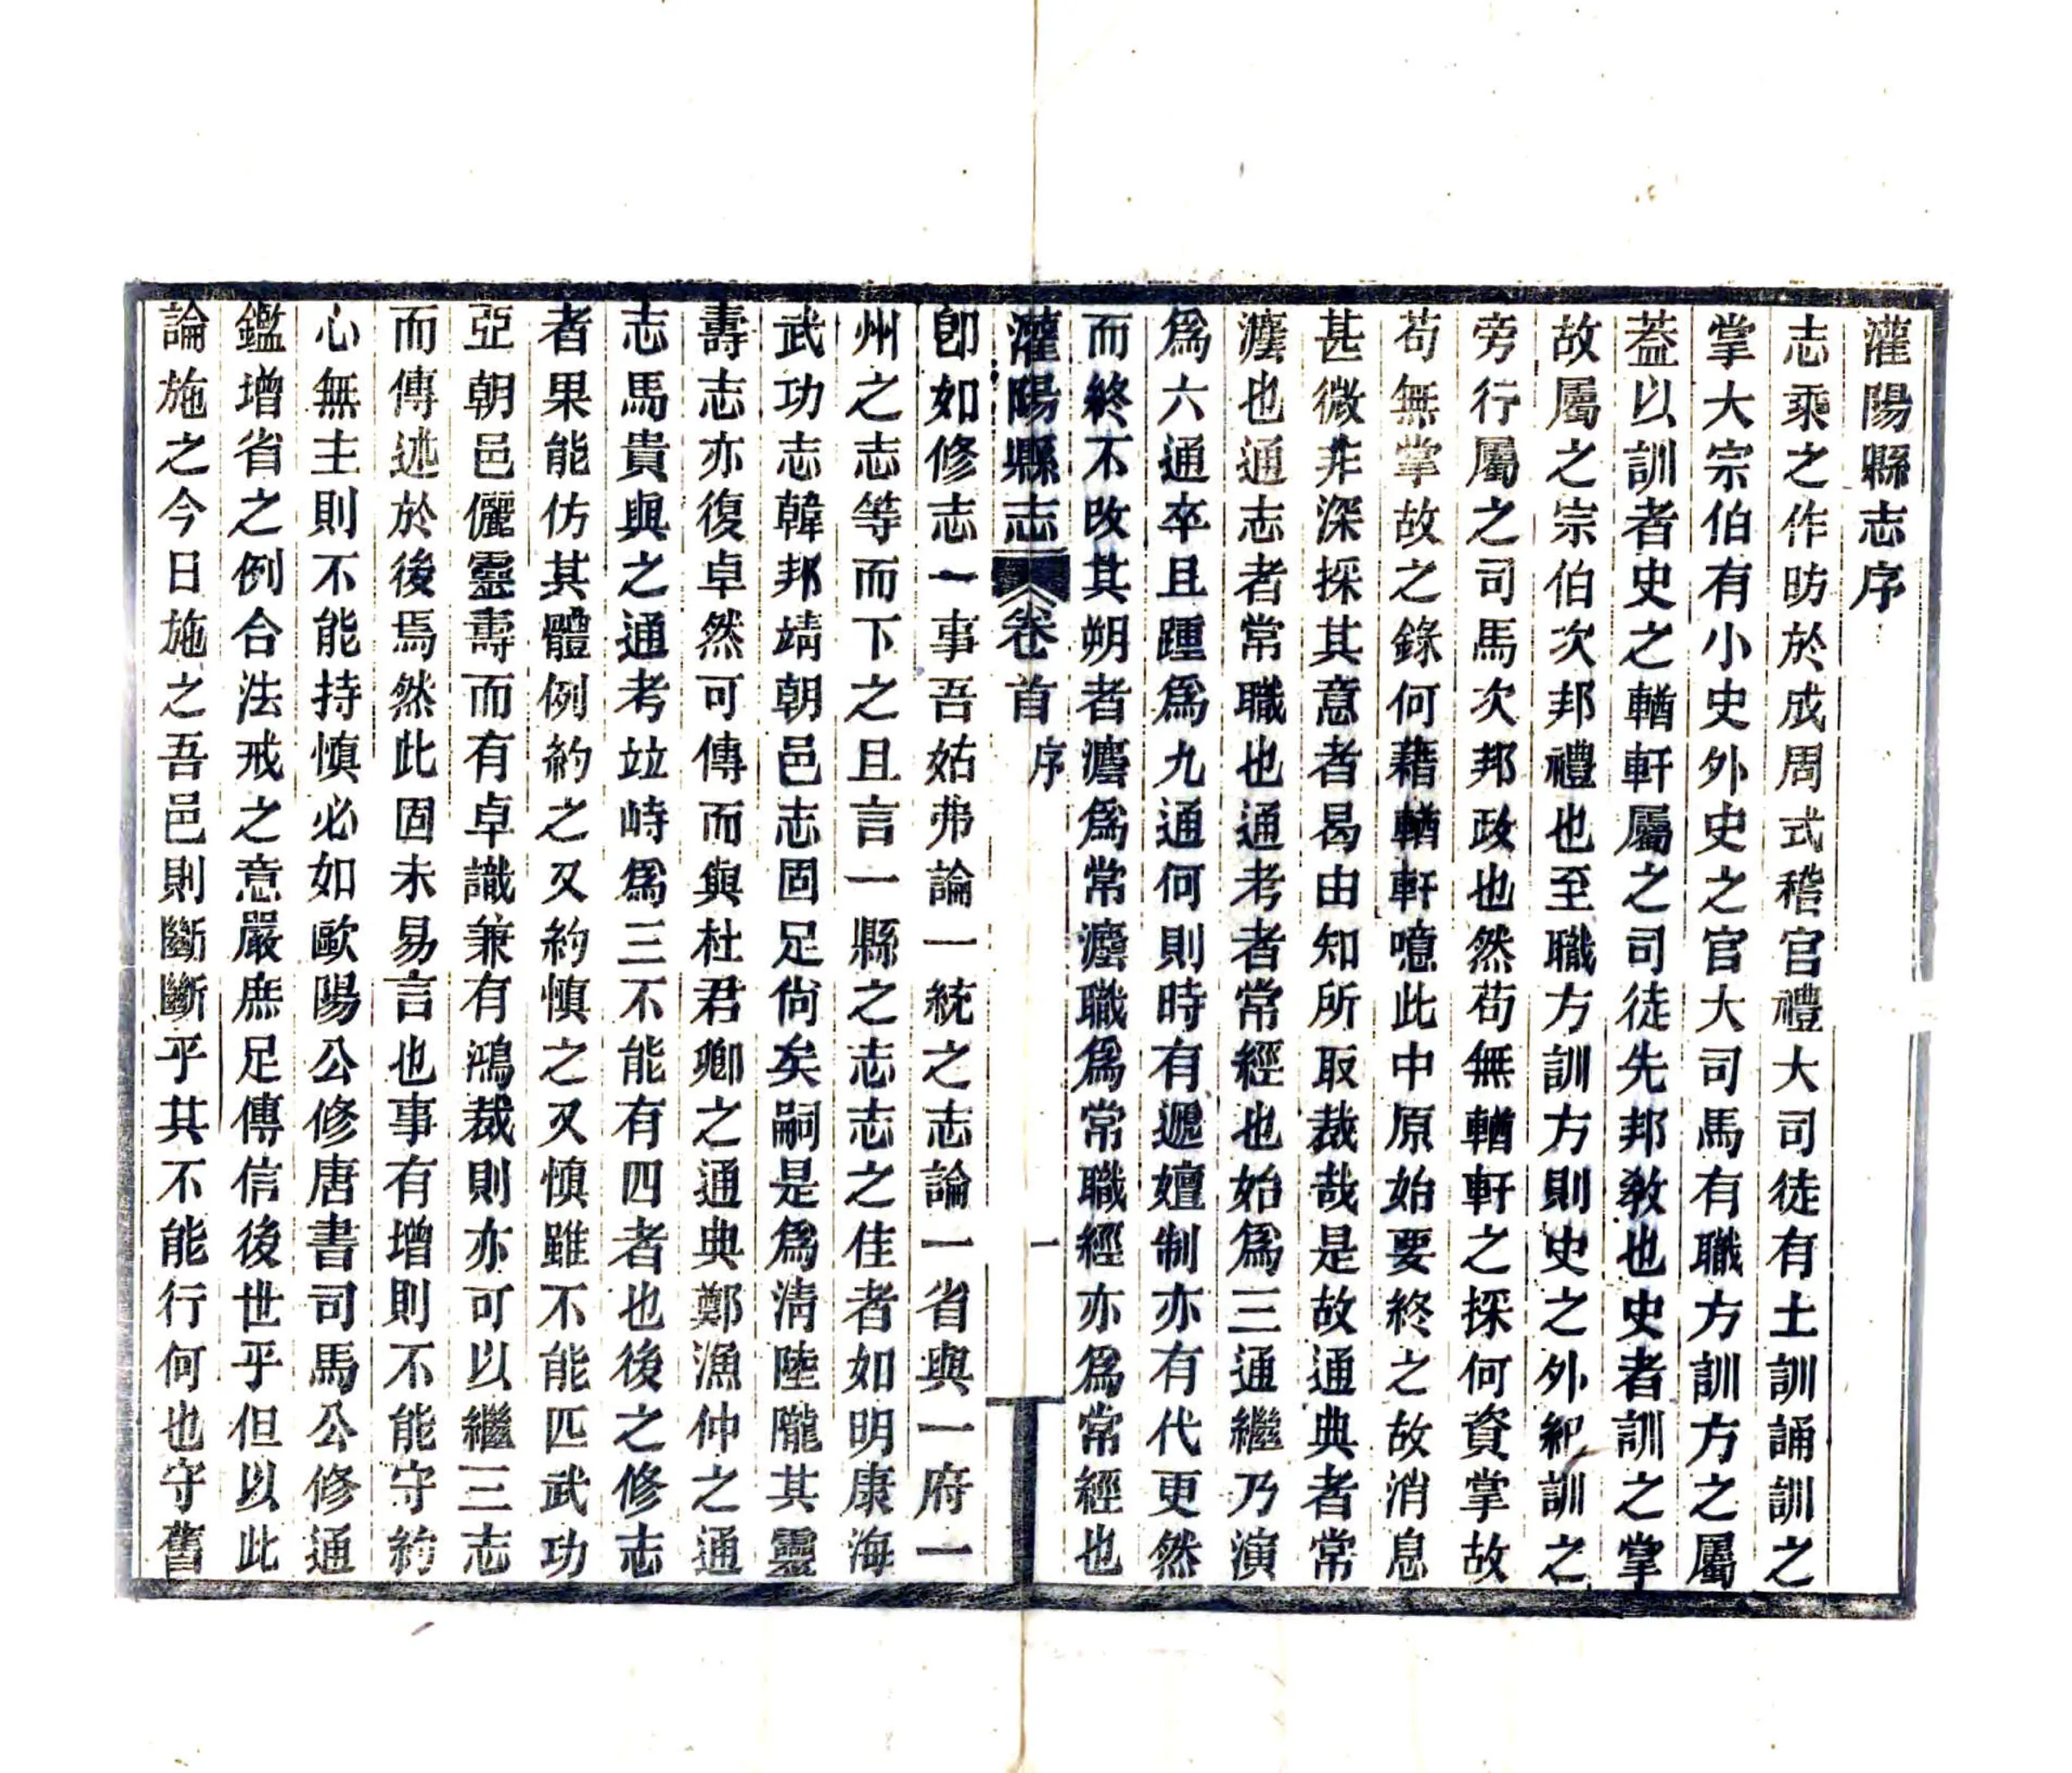 灌陽縣志序
志乘之作昉於成周式稽官禮大司徒有土訓誦訓之
掌大宗伯有小史外史之官大司馬有職方訓方之屬
葢以訓者史之輶軒屬之司徒先邦教也史者訓之掌
故屬之宗伯次邦禮也至職方訓方則史之外紀訓之
旁行屬之司馬次邦政也然苟無輶軒之採何資掌故
苟無掌故之錄何藉輶軒噫此中原始要終之故消息
甚微非深探其意者曷由知所取裁哉是故通典者常
灋也通志者常職也通考者常經也始爲三通繼乃演
爲六通卒且踵爲九通何則時有遞嬗制亦有代更然
而終不改其朔者灋爲常灋職爲常職經亦爲常經也
灌陽縣志
卷首
序
一
卽如修志一事吾姑弗論一統之志論一省與一府一
州之志等而下之且言一縣之志志之佳者如明康海
武功志韓邦靖朝邑志固足尙矣嗣是爲淸陸隴其靈
壽志亦復卓然可傳而與杜君卿之通典鄭漁仲之通
志馬貴與之通考竝峙爲三不能有四者也後之修志
者果能仿其體例約之又約愼之又愼雖不能匹武功
亞朝邑儷靈壽而有卓識兼有鴻裁則亦可以繼三志
而傳述於後焉然此固未易言也事有增則不能守約
心無主則不能持愼必如歐陽公修唐書司馬公修通
鑑增省之例合法戒之意嚴庶足傳信後世乎但以此
論施之今日施之吾邑則斷斷乎其不能行何也守舊